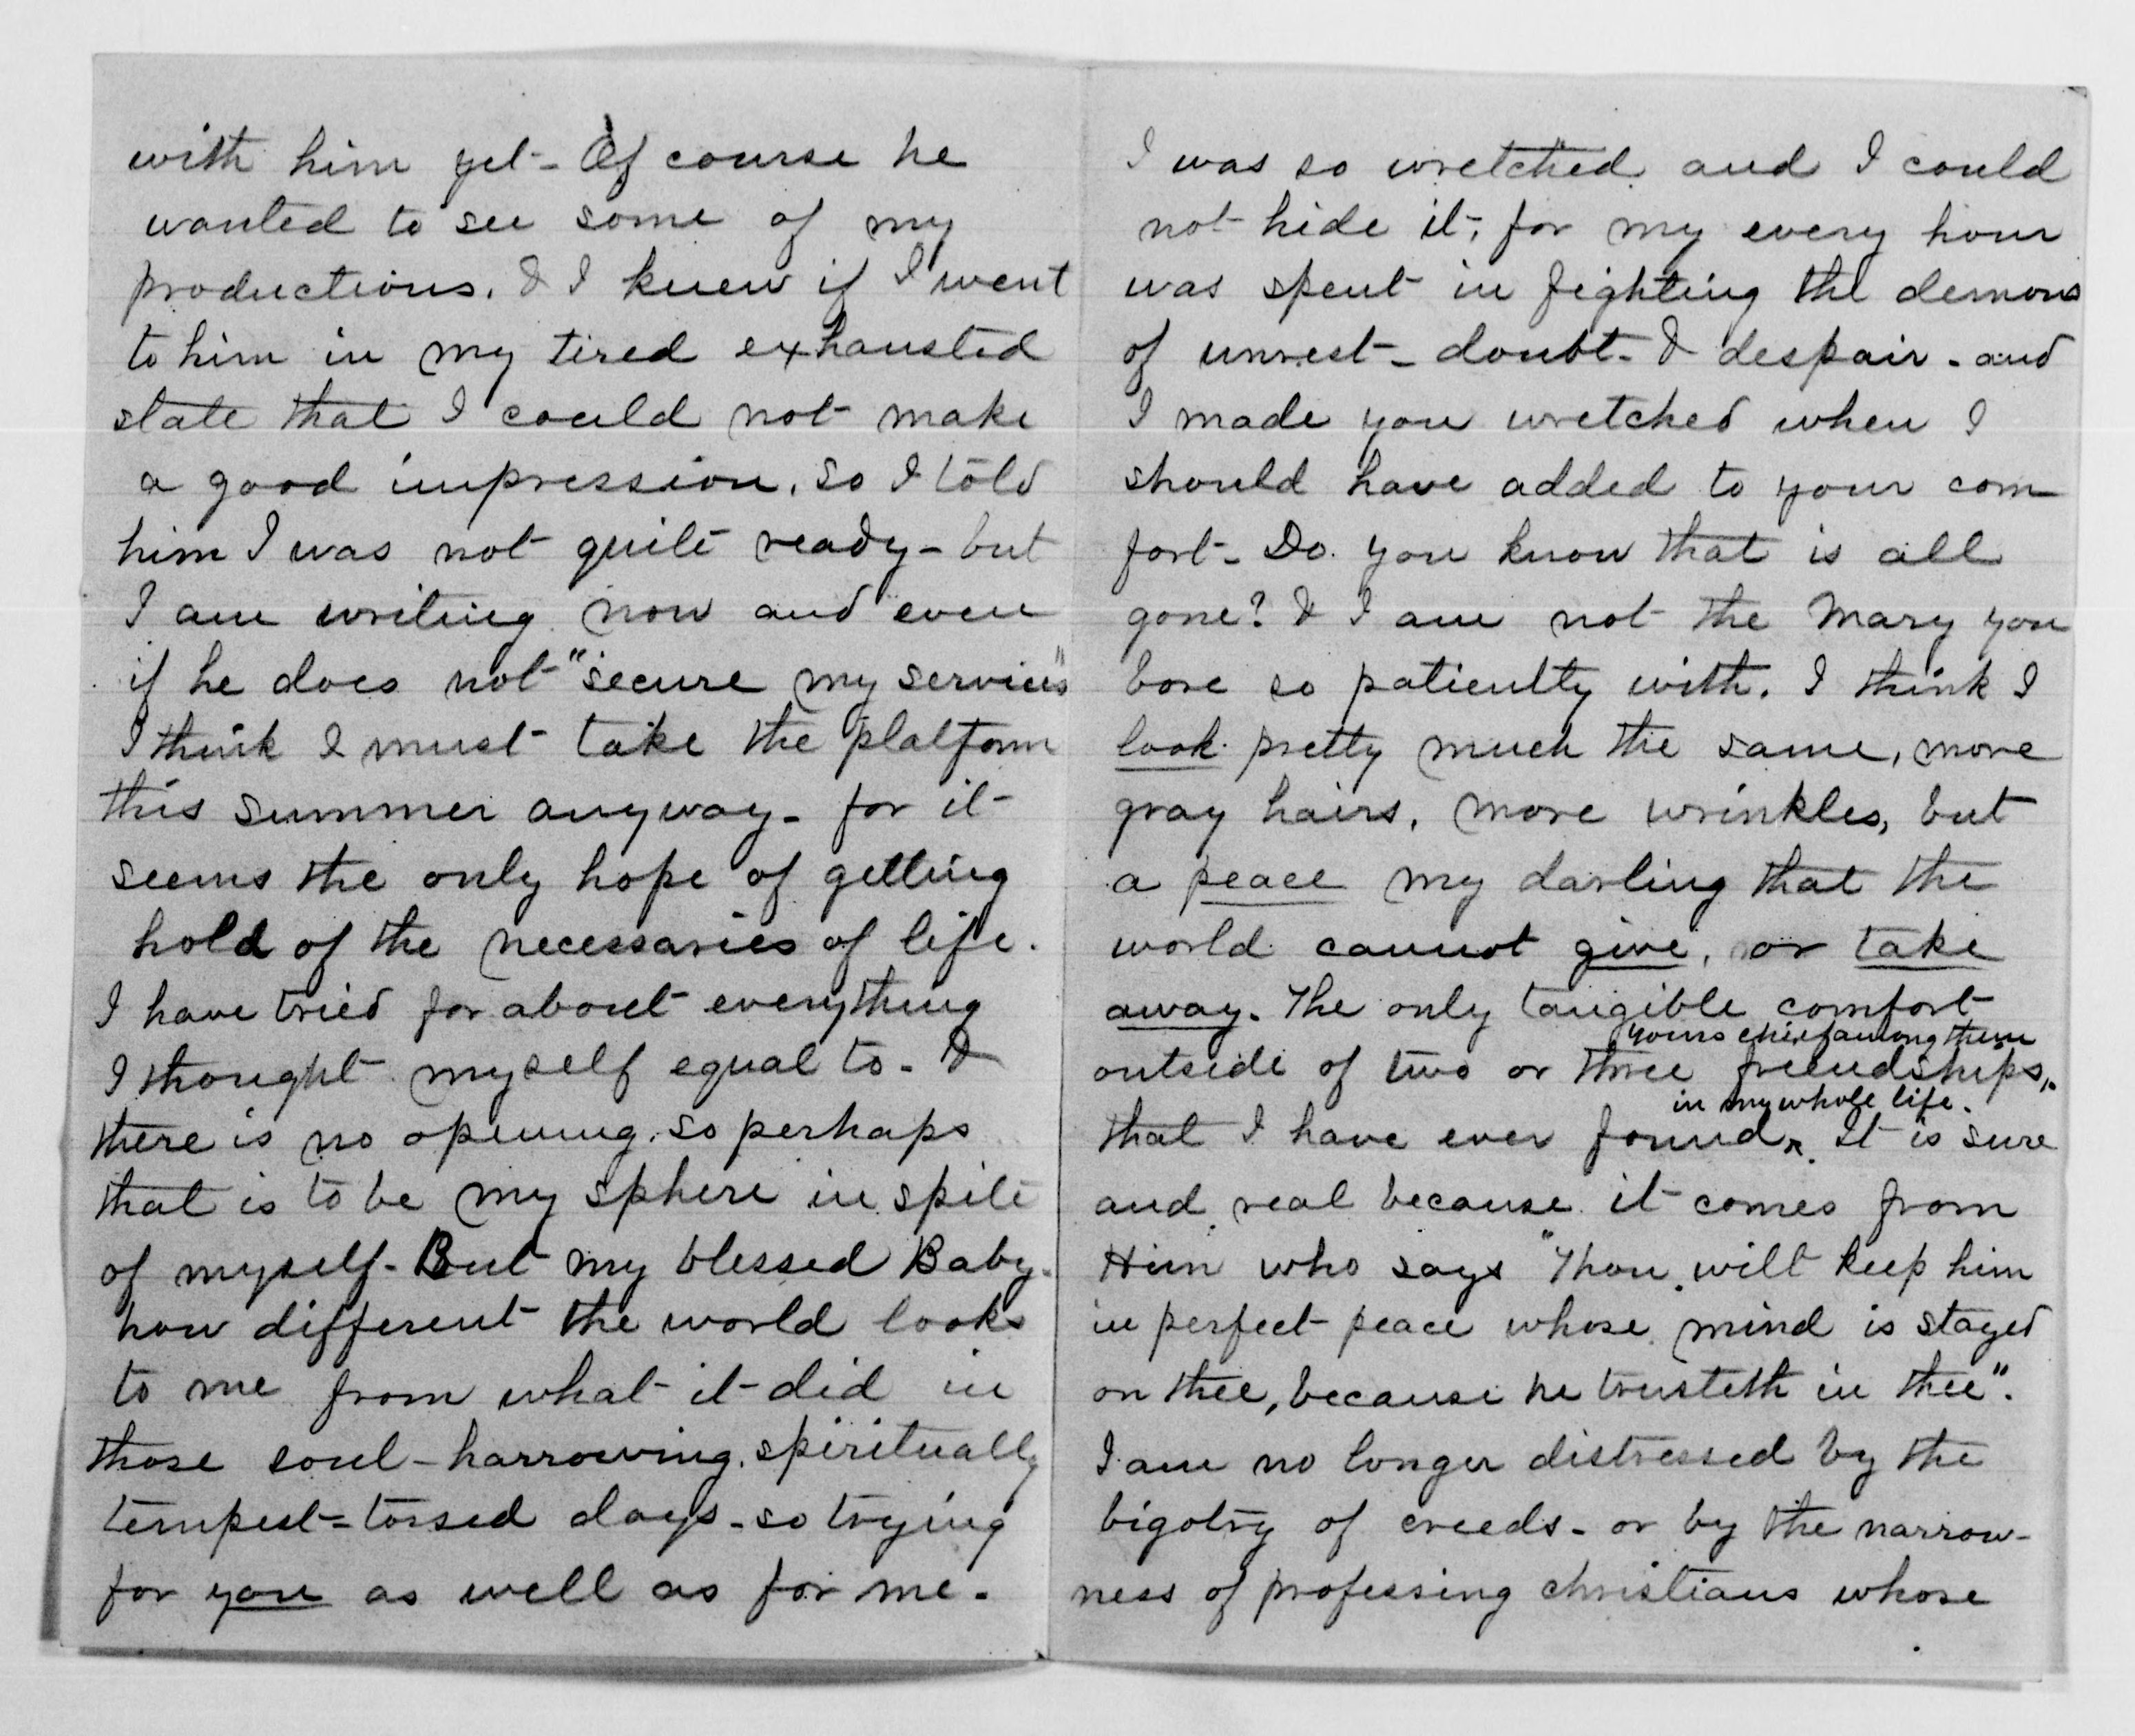 with him yet - Of course he
wanted to see some of my
productions. & I knew if I went
to him in my tired exhausted
state that I could not make
a good impression. so I told
him I was not quite ready - but
I am writing now and even
if he does not "secure my services"
I think I must take the platform
this summer anyway - for it
seems the only hope of getting
hold of the necessaries of life.
I have tried for about everything
I thought myself equal to - &
there is no opening. so perhaps
that is to be my sphere in spite
of myself - But my blessed Baby -
how different the world looks
to me from what it did in
those soul-harrowing, spiritually
tempest-tossed days - so trying
for you as well as for me -
I was so wretched and I could
not hide it, for my every hour
was spent in fighting the demons
of unrest - doubt - & despair - and
I made you wretched when I
should have added to your com
fort - Do you know that is all
gone? & I am not the Mary you
bore so patiently with. I think I
look pretty much the same, more
gray hairs, more wrinkles, but
a peace my darling that the
world cannot give, or take
away. The only tangible comfort
yours chief among them
outside of two or three friendships,
in my whole life.
that I have ever found^. It is sure
and real because it comes from
Him who says "Thou wilt keep him
in perfect peace whose mind is stayed
on thee, because he trusteth in thee".
I am no longer distressed by the
bigotry of creeds - or by the narrow-
ness of professing christians whose